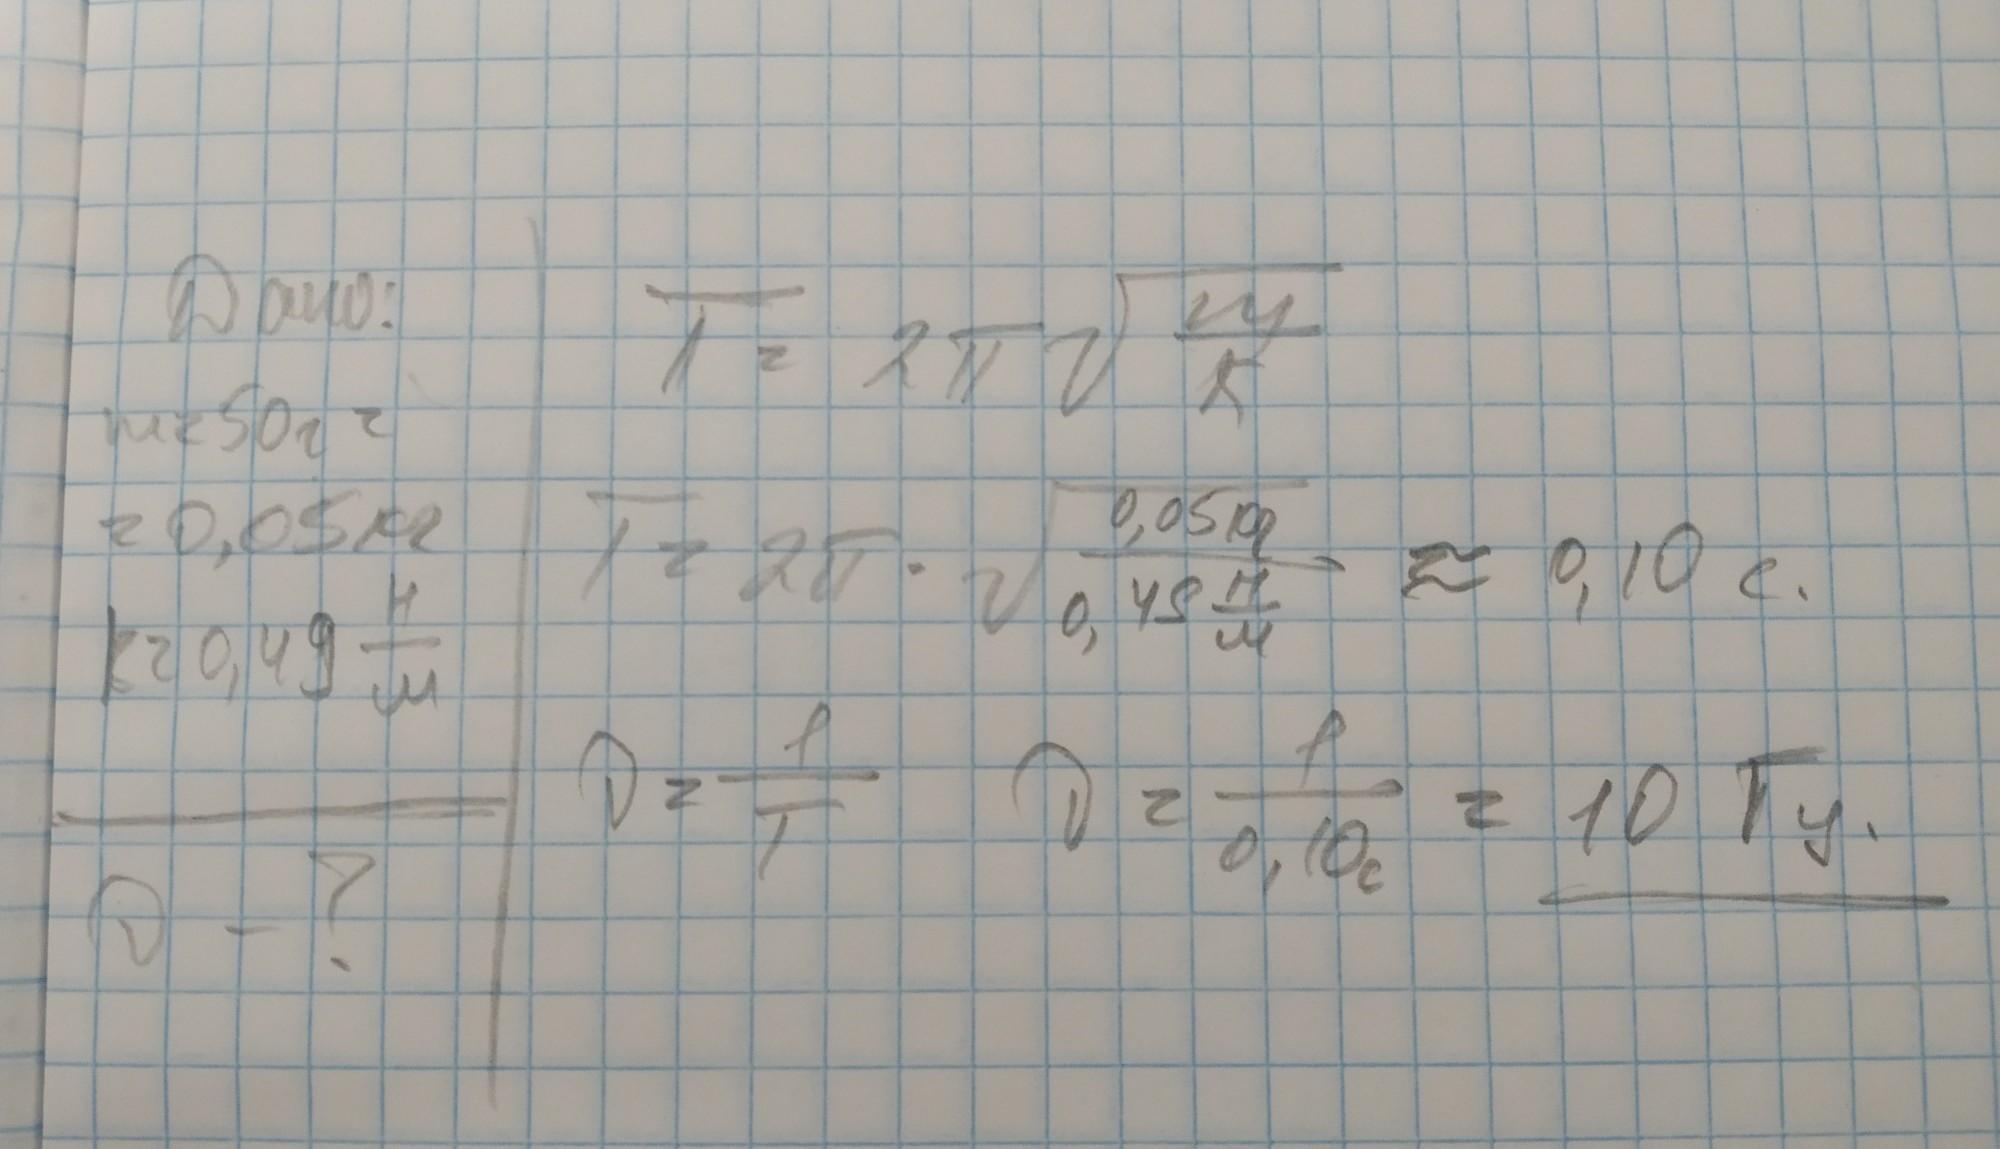 Дано:
m=50г=
=0,05кг
k=0,49 Н/м
ν - ?
T = 2π√(m/k)
T = 2π · √(0,05кг/0,49 Н/м) ≈ 0,10 с.
ν = 1/T ν = 1/0,10с = 10 Гц.